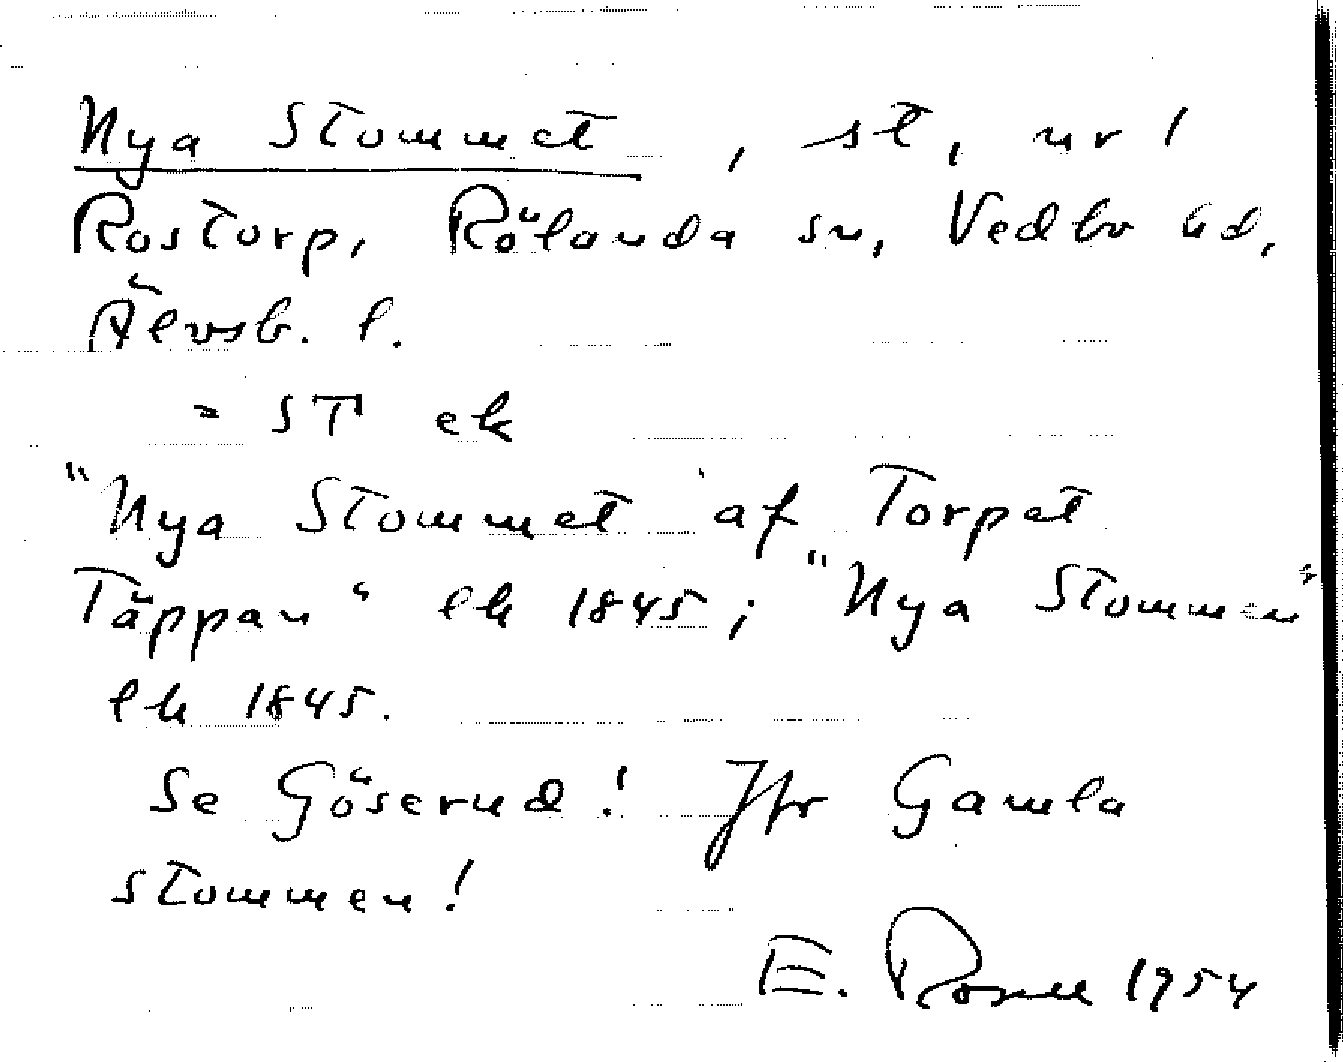 Nya Stommet, st, nr 1
Rostorp, Rölanda sn, Vedbo hd,
Älvsb. l.
= ST ek
"Nya Stommet af Torpet
Täppan" ek 1845; "Nya Stommen"
ek 1845.
Se Göserud! Jfr Gamla
stommen!
E. 1954